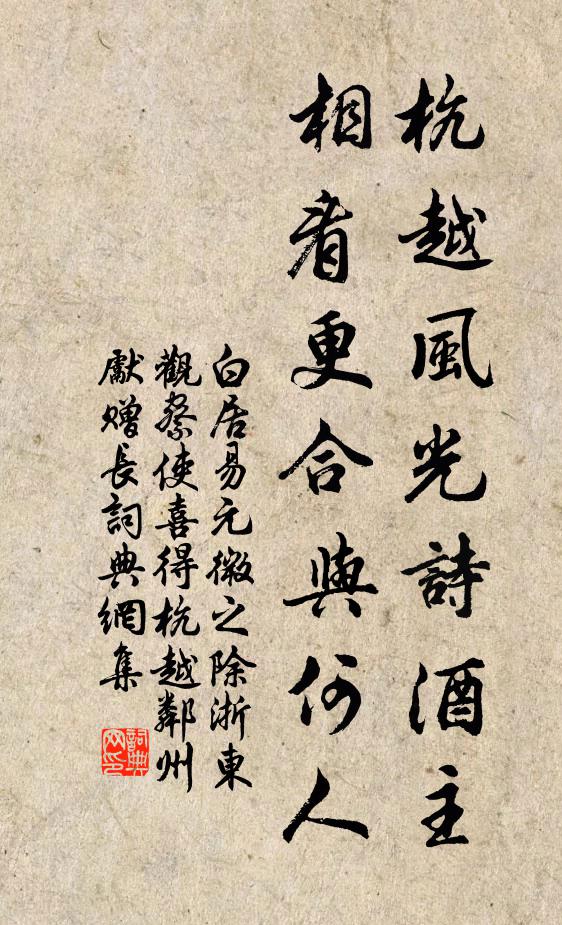 杭越風光詩酒主
相看更合與何人
白居易元微之除浙東
觀察使喜得杭越鄰州
獻贈長詞典網集
詞典
网印